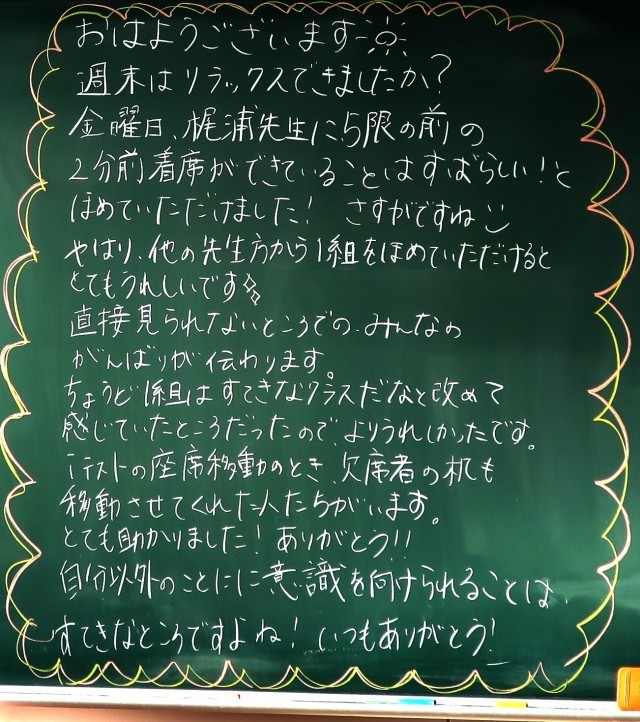 おはようございます
週末はリラックスできましたか?
金曜日、梶浦先生に5限の前の
2分前着席ができていることはすばらしい!と
ほめていただけました! さすがですね
やはり、他の先生方から1組をほめていただけると
とてもうれしいです
直接見られないところでの、みんなの
がんばりが伝わります。
ちょうど1組はすてきなクラスだなと改めて
感じていたところだったので、よりうれしかったです。
テストの座席移動のとき、欠席者の机も
移動させてくれた人たちがいます。
とても助かりました! ありがとう!!
自分以外のことにに意識を向けられることは、
すてきなところですよね! いつもありがとう!